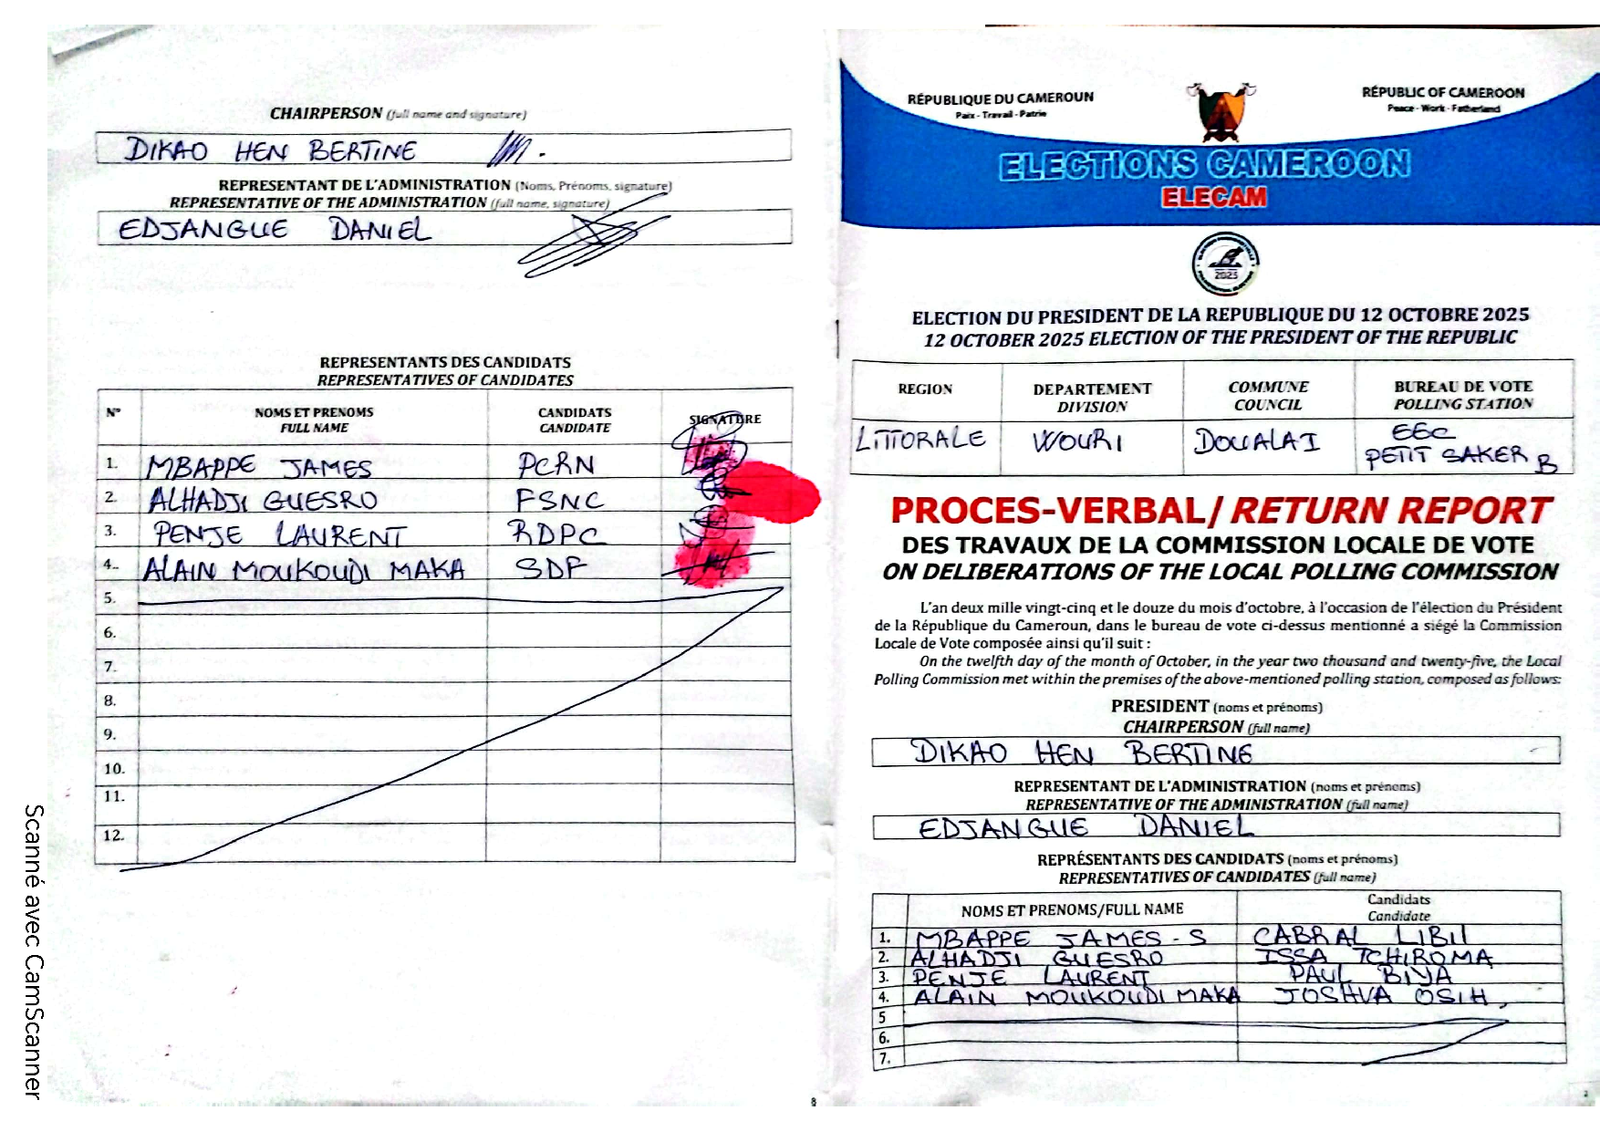 CHAIRPERSON (full name and signature)
DIKAO HEN BERTINE
REPRESENTANT DE L'ADMINISTRATION (Noms, Prénoms, signature)
REPRESENTATIVE OF THE ADMINISTRATION (full name, signature)
EDJANGUE DANIEL
REPRESENTANTS DES CANDIDATS
REPRESENTATIVES OF CANDIDATES
N° NOMS ET PRENOMS CANDIDATS SIGNATURE
FULL NAME CANDIDATE
1. MBAPPE JAMES PCRN
2. ALHADJI GUESRO FSNC
3. PENJE LAURENT RDPC
4. ALAIN MOUKOUDI MAKA SDF
5.
6.
7.
8.
9.
10.
11.
12.
8
Scanné avec CamScanner
RÉPUBLIQUE DU CAMEROUN
Paix - Travail - Patrie
RÉPUBLIC OF CAMEROON
Peace - Work - Fatherland
ELECTIONS CAMEROON
ELECAM
2025
ELECTION DU PRESIDENT DE LA REPUBLIQUE DU 12 OCTOBRE 2025
12 OCTOBER 2025 ELECTION OF THE PRESIDENT OF THE REPUBLIC
REGION DEPARTEMENT COMMUNE BUREAU DE VOTE
DIVISION COUNCIL POLLING STATION
LITTORALE WOURI DOUALA I EEC
PETIT SAKER B
PROCES-VERBAL/ RETURN REPORT
DES TRAVAUX DE LA COMMISSION LOCALE DE VOTE
ON DELIBERATIONS OF THE LOCAL POLLING COMMISSION
L'an deux mille vingt-cinq et le douze du mois d'octobre, à l'occasion de l'élection du Président
de la République du Cameroun, dans le bureau de vote ci-dessus mentionné a siégé la Commission
Locale de Vote composée ainsi qu'il suit :
On the twelfth day of the month of October, in the year two thousand and twenty-five, the Local
Polling Commission met within the premises of the above-mentioned polling station, composed as follows:
PRESIDENT (noms et prénoms)
CHAIRPERSON (full name)
DIKAO HEN BERTINE
REPRESENTANT DE L'ADMINISTRATION (noms et prénoms)
REPRESENTATIVE OF THE ADMINISTRATION (full name)
EDJANGUE DANIEL
REPRÉSENTANTS DES CANDIDATS (noms et prénoms)
REPRESENTATIVES OF CANDIDATES (full name)
NOMS ET PRENOMS/FULL NAME Candidats
Candidate
1. MBAPPE JAMES - S CABRAL LIBII
2. ALHADJI GUESRO ISSA TCHIROMA
3. PENJE LAURENT PAUL BIYA
4. ALAIN MOUKOUDI MAKA JOSHVA OSIH,
5
6.
7.